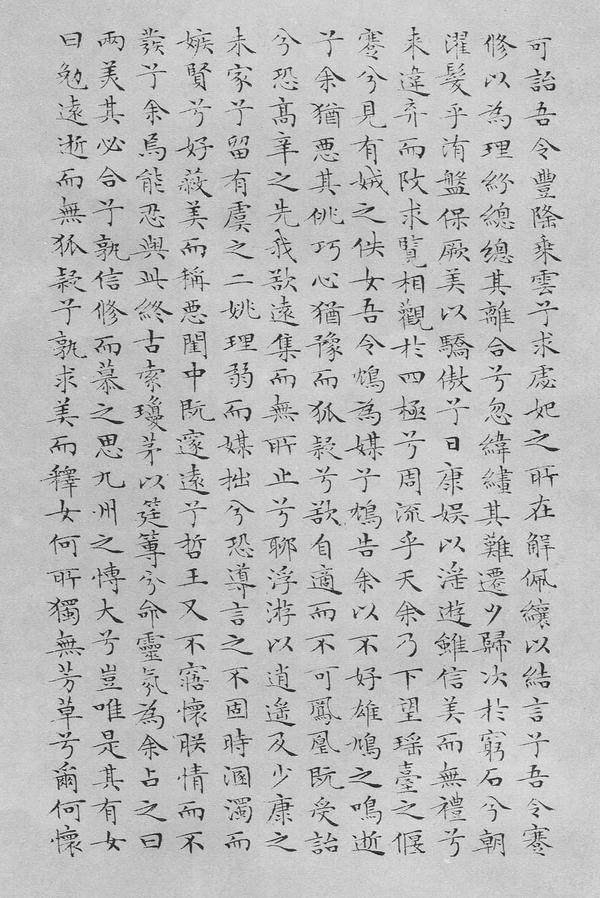 可詒吾令豐隆乘雲兮求虙妃之所在解佩纕以結言兮吾令蹇
修以為理紛總總其離合兮忽緯繣其難遷夕歸次於窮石兮朝
濯髮乎洧盤保厥美以驕傲兮日康娛以淫遊雖信美而無禮兮
来違弃而改求覽相觀於四極兮周流乎天余乃下望瑤臺之偃
蹇兮見有娀之佚女吾令鴆為媒兮鴆告余以不好雄鳩之鳴逝
兮余猶惡其佻巧心猶豫而狐疑兮欲自適而不可鳳凰既受詒
兮恐高辛之先我欲遠集而無所止兮聊浮游以逍遙及少康之
未家兮留有虞之二姚理弱而媒拙兮恐導言之不固時溷濁而
嫉賢兮好蔽美而稱惡閨中既邃遠兮哲王又不寤懷朕情而不
發兮余焉能忍與此終古索瓊茅以筳篿兮命靈氛為余占之曰
兩美其必合兮孰信修而慕之思九州之博大兮豈唯是其有女
曰勉遠逝而無狐疑兮孰求美而釋女何所獨無芳草兮爾何懷